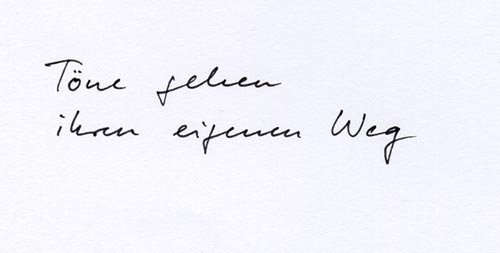 Töne gehen
ihren eigenen Weg